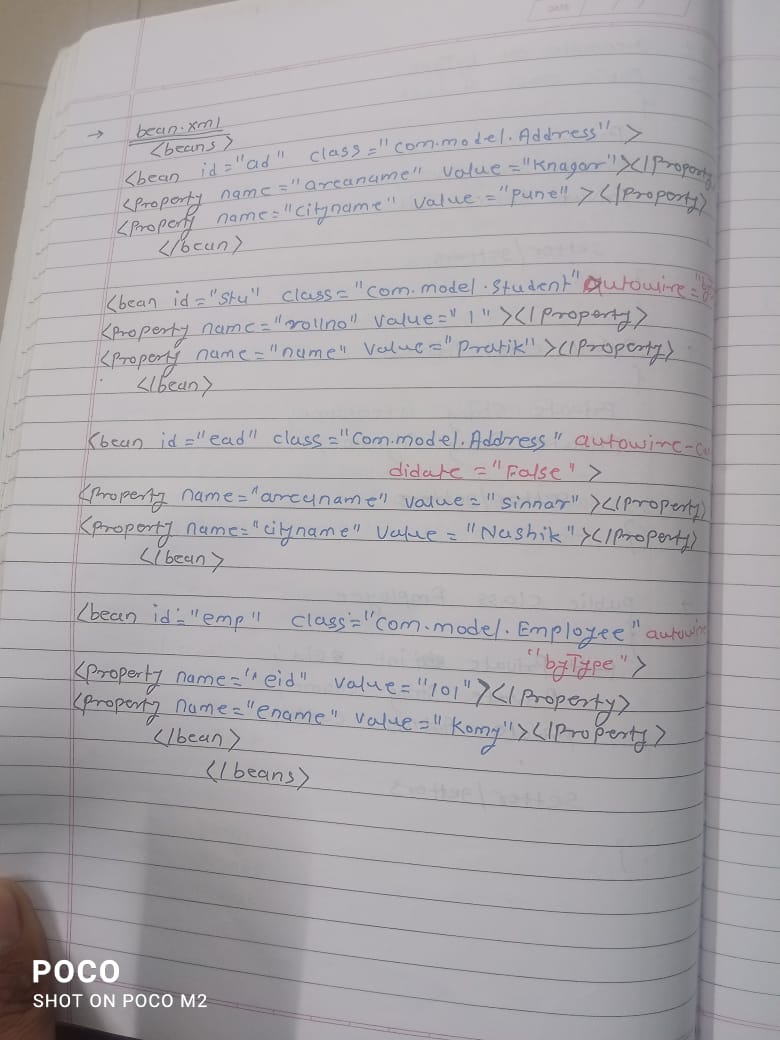 → bean.xml
<beans>
<bean id="ad" class="com.model.Address" >
<property name="areaname" value="Knagar"></Property
<property name="cityname" value="pune" ></Property>
</bean>
<bean id="stu" class="com.model.student" autowire="
<property name="rollno" value="1"></Property>
<property name="name" value="Pratik"></Property>
</bean>
<bean id="ead" class="com.model.Address" autowire-c
didate="False">
<property name="areaname" value="sinnar"></Property)
<property name="cityname" value="Nashik"></Property>
</bean>
<bean id="emp" class="com.model.Employee" autowire
"byType">
<property name="eid" value="101"></Property>
<property name="ename" value="Komy"></Property>
</bean>
</beans>
POCO
SHOT ON POCO M2